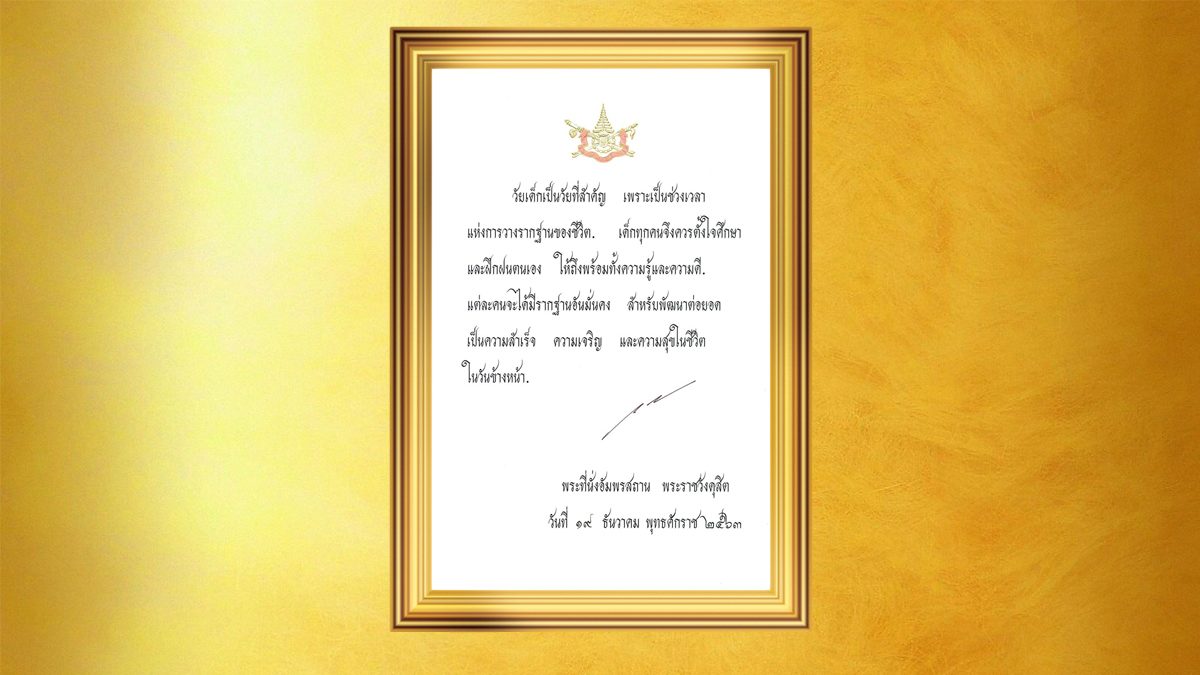 วัยเด็กเป็นวัยที่สำคัญ เพราะเป็นช่วงเวลา
แห่งการวางรากฐานของชีวิต. เด็กทุกคนจึงควรตั้งใจศึกษา
และฝึกฝนตนเอง ให้ถึงพร้อมทั้งความรู้และความดี.
แต่ละคนจะได้มีรากฐานอันมั่นคง สำหรับพัฒนาต่อยอด
เป็นความสำเร็จ ความเจริญ และความสุขในชีวิต
ในวันข้างหน้า.
พระที่นั่งอัมพรสถาน พระราชวังดุสิต
วันที่ ๑๙ ธันวาคม พุทธศักราช ๒๕๖๓